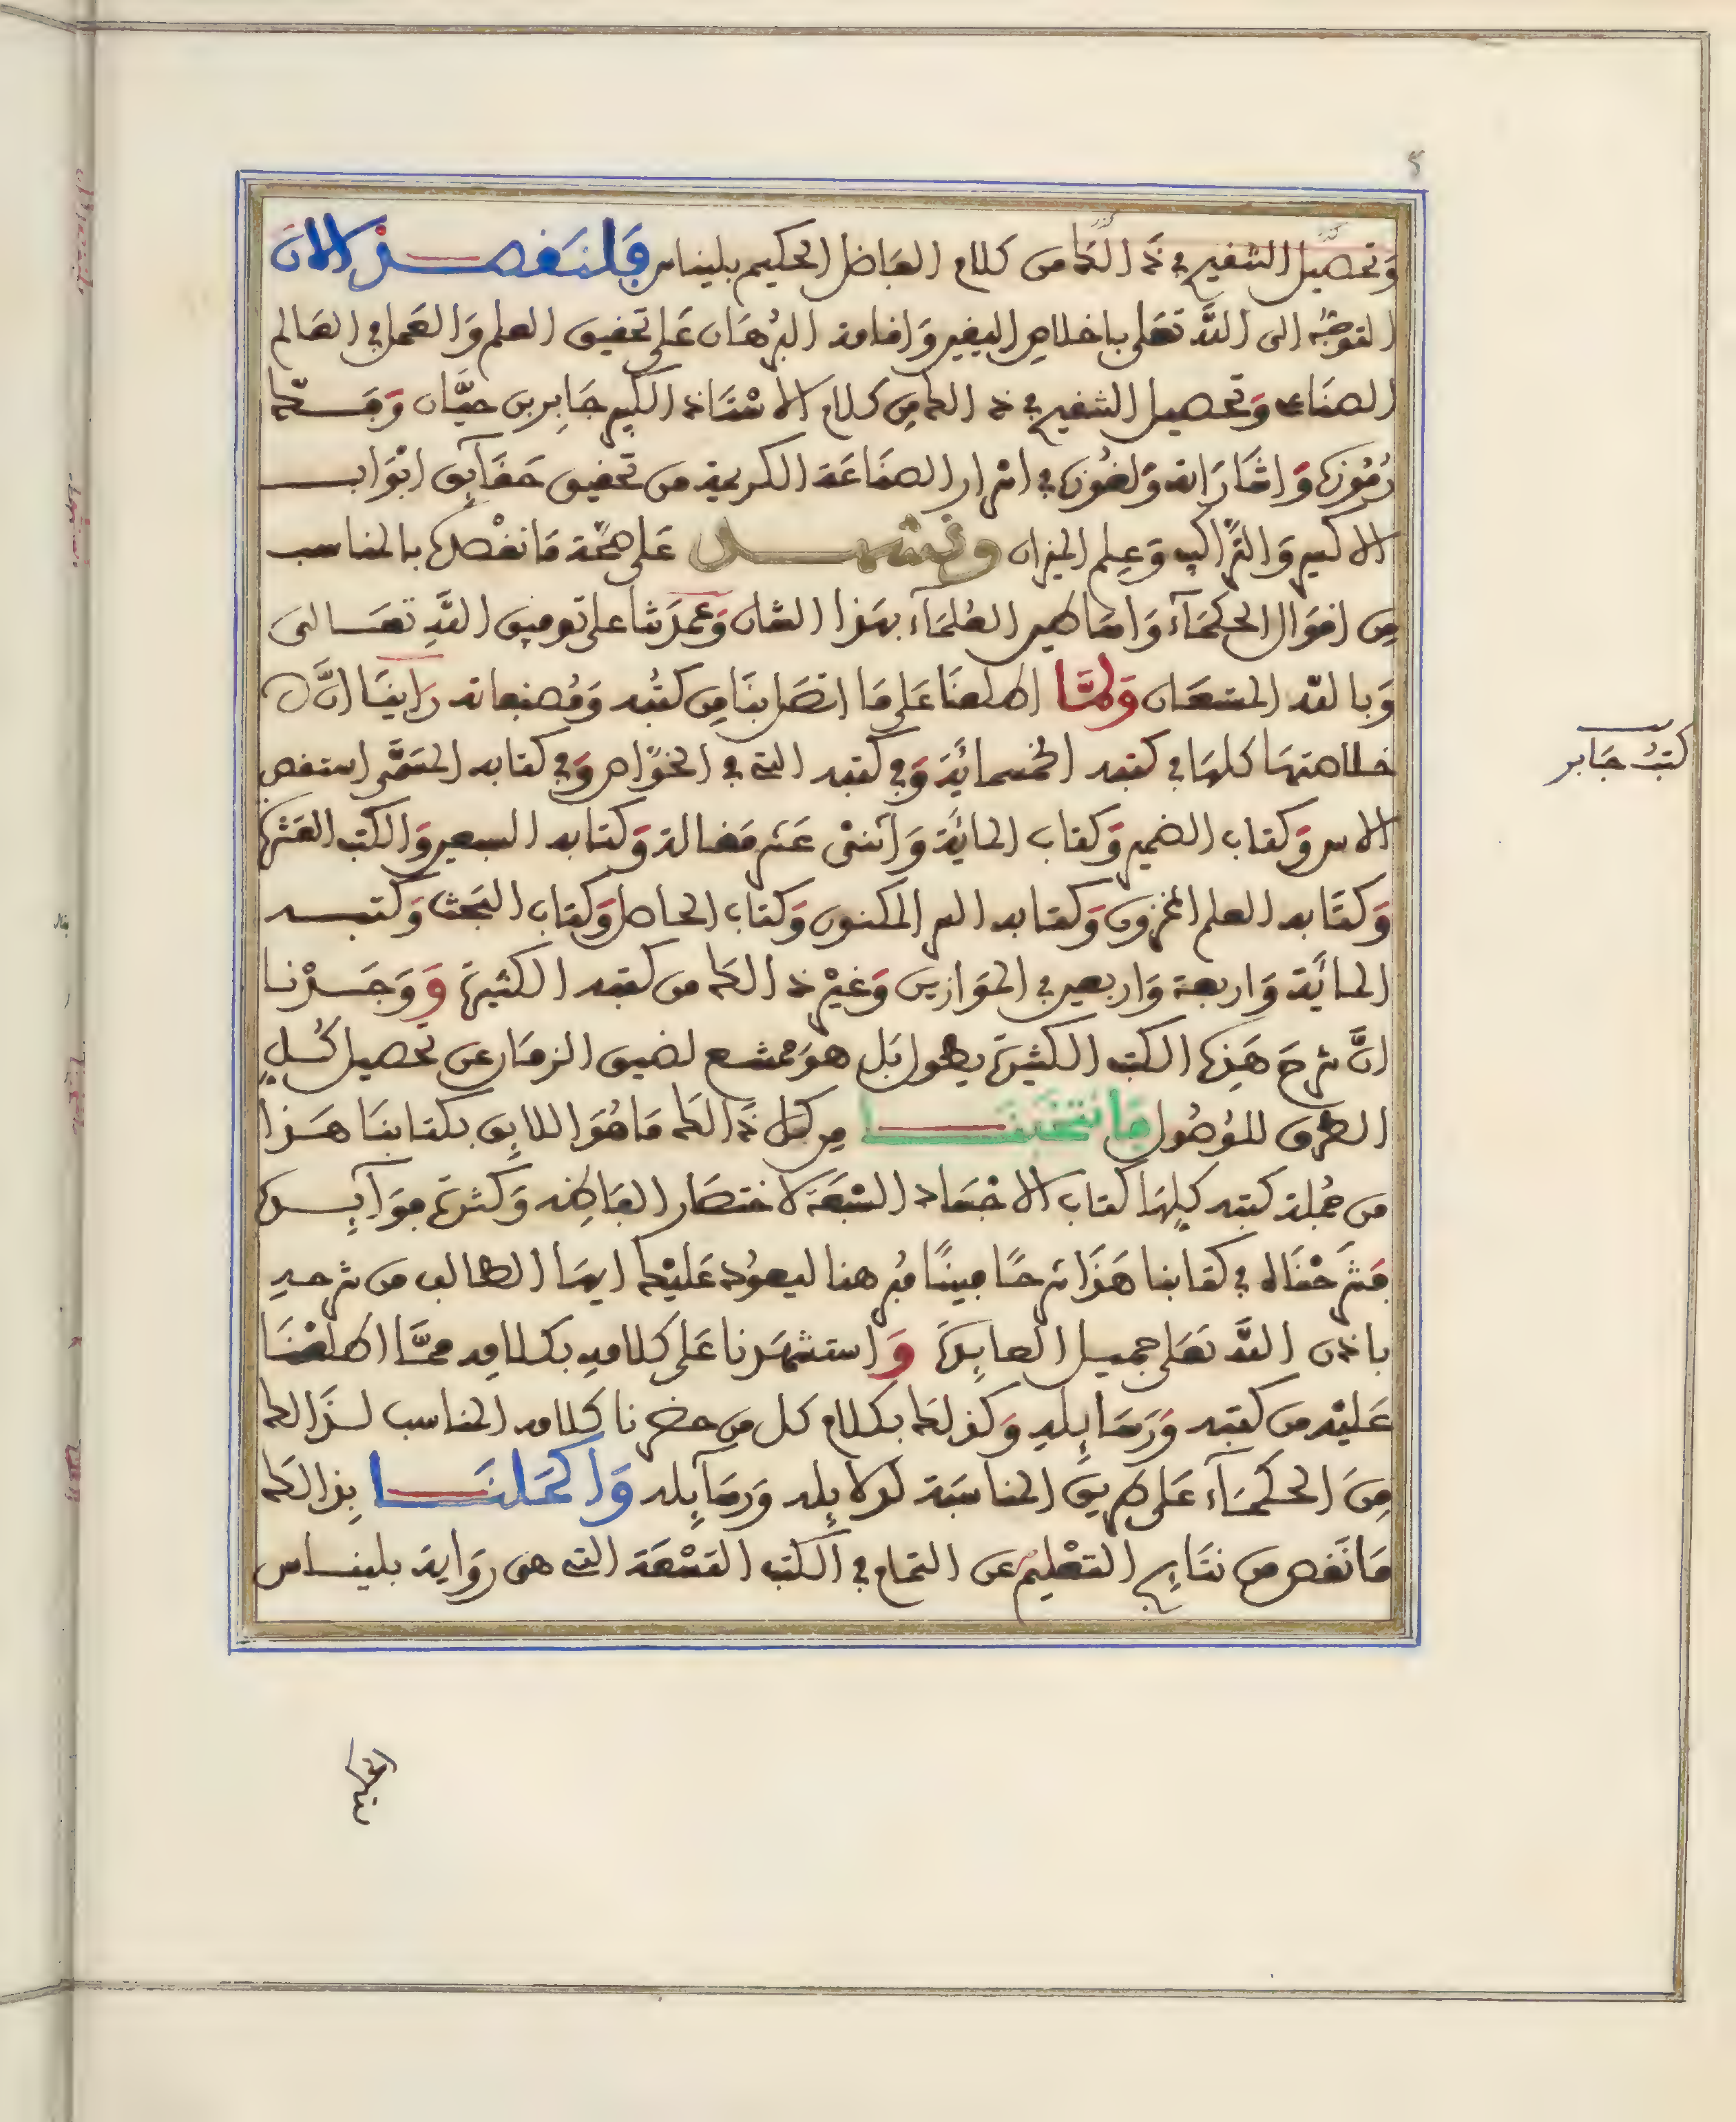 وَتحصيل الشفيع في ذَالكَ من كلام الفاضل الحكيم بليناس فَلنَقصد الان
التوجّه الى اللّه تعَلى باخلاص اليقين وَاقامة البُرهَان عَلى تحقيق العلم وَالعَمل في العَالم
الصنَاعى وَتحصيل الشفيع في ذالك مِن كلام الاسْتَاذ الكبير جَابِر بن حيَّان وَفَــكّ
رُمُوزه وَاشَارَاته وَلغُوزه في اسْرار الصنَاعَة الكريمة من تحقيق حَقَآيق ابْوَاب
الاكسير وَالترَاكيب وَعِلم الميزان ونستدل عَلى صحّة مَا نقْصده بالمناسب
مِن اقوَال الحكمَآء وَاسَاطير العُلمَآء بهَذا الشان وَعمدَتنا على توفيق اللّهِ تعَــالى
وَبالله المستعَان وَلمَّا اطلعنَا عَلى مَا اتصَل بنَا مِن كتُبه وَمُصنفاته رَاينَا انَّ
خلاصتهَا كلهَا في كتبه الخمسمائَة وَفي كتبه التي في الخوَاص وَفي كتابه المسَمَّى استقص
الاس وَكتاب الضمير وَكتاب المائَة وَاثنىْ عَشر مَقالة وَكتابه السبعين وَالكتب العَشره
وَكتَابه العلم المخزون وَكتابه السر المكنون وَكتاب الحاصل وَكتاب البَحث وَكتبــه
المائَة وَاربعة وَاربعين في الموَازين وَغيْر ذالك من كتبه الكثيرَة وَوَجَــدْنا
انَّ شرحَ هَذِه الكتب الكثيرَة يطول بَل هوَ ممتنــع لضيق الزمَان عن تحصيل كُــلّ
الطرق للوُصُول فَانتخبنَــا مِن كل ذَالك مَا هُوَ اللايق بكتابنَا هَــذا
من جُملة كتبه كلِهَا كتاب الاجْسَاد السّبعَة لاختصَار الفَاظه وَكثرَة فوَآيــده
فشَرَحْنَاه في كتابنا هَذَا شرحًا مبينًا مُبرهنا ليعوُد عَليْك ايهَا الطالب من شرحــه
باذن اللّهِ تعَلى جميــل العايدَة وَاستشهَدنا عَلى كلامه بكلامِه ممَّا اطلعْنَــا
عَليْه من كتبه وَرَسَايِلهِ وَكذلكَ بكلام كل من حضرنا كلامه المناسب لــذَالك
مِنَ الحكمَــآء عَلى طريق المناسَبَة لدلايِله وَرسَآيِله وَاكمَلنَــا بِذالكَ
مَا نَقص من نتَايج التعْليم عن التمام في الكتب التسْعَة التي هى رِوَاية بلينــاس
كتبُ جَابر